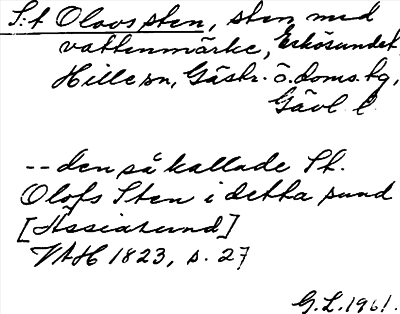 S:t Olovs sten, sten med
vattenmärke, Eskösundet,
Hille sn, Gästr. ö. doms. hg,
Gävl. l.
-- den så kallade St.
Olofs Sten i detta sund
[Ässiasund]
VAH 1823, s. 27
G.L. 1961.